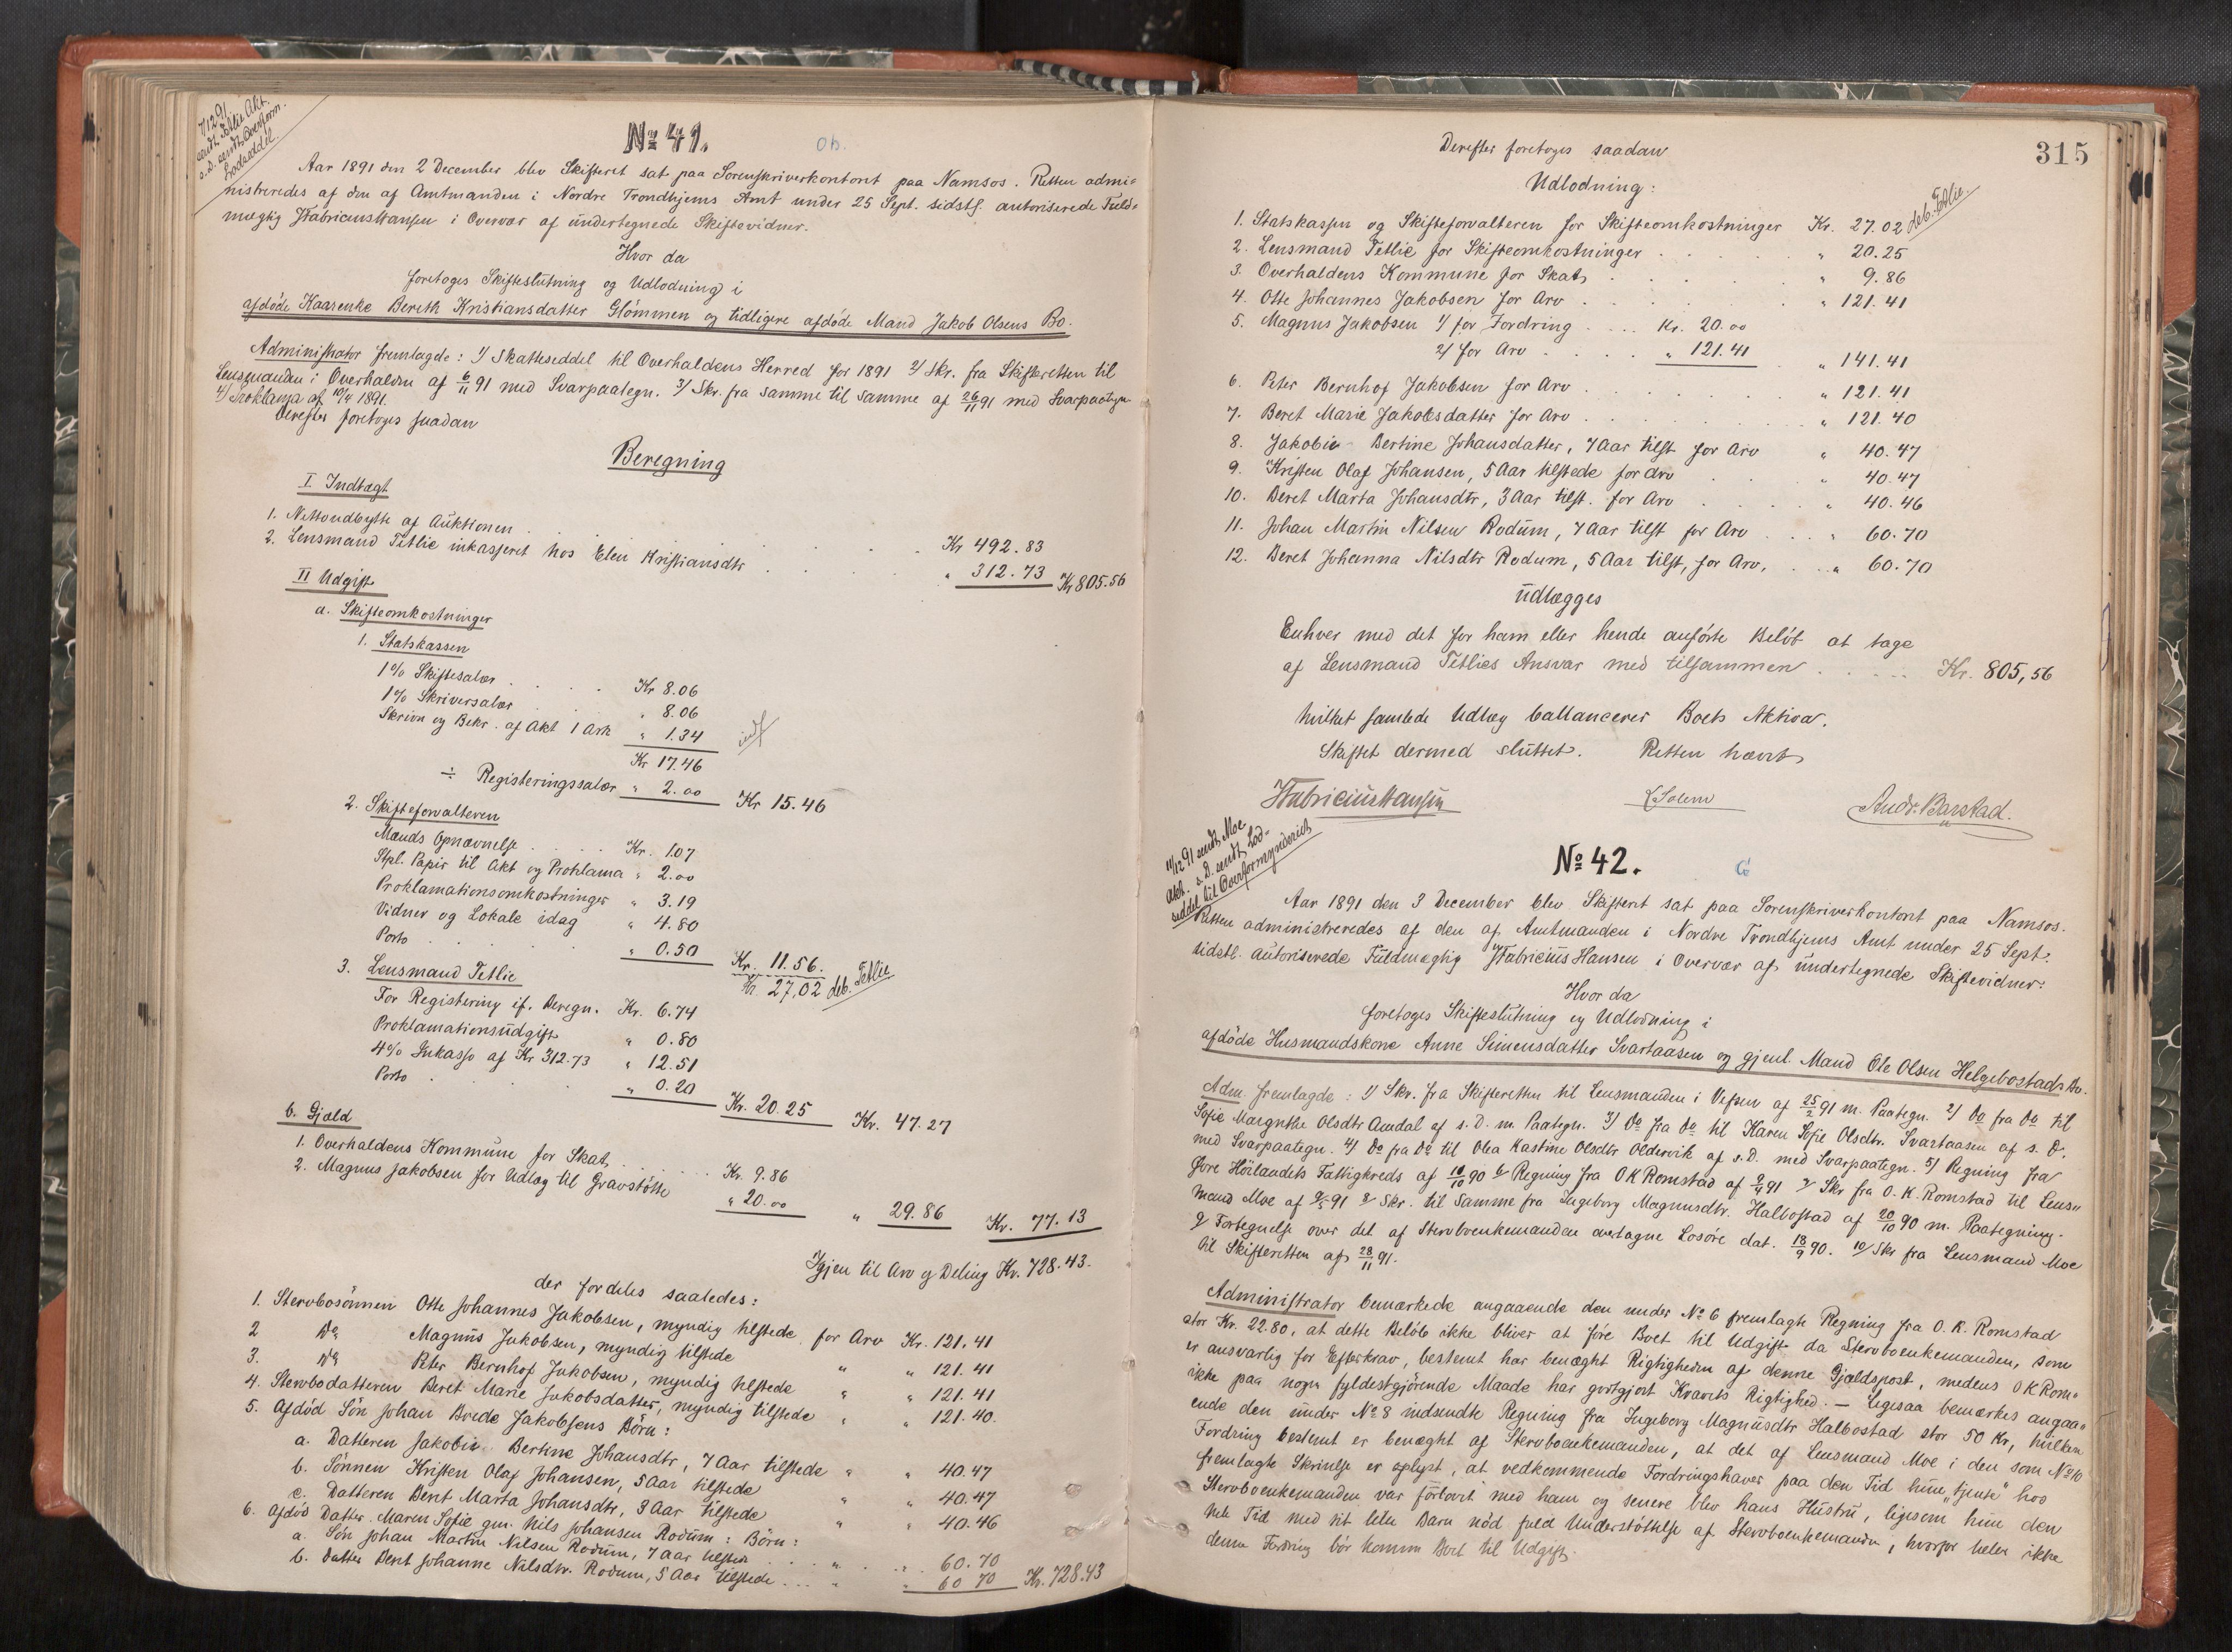 7/12 91
sendt Tetlie Akt.
s.D. sendt Overform.
Lodseddel.
No 41.
Ob.
Aar 1891 den 2 December blev Skifteret sat paa Sorenskriverkontoret paa Namsos. Retten admi=
nistreredes af den af Amtmanden i Nordre Trondhjems Amt under 25 Sept. sidstl. autoriserede Fuld=
mægtig Fabricius Hansen i Overvær af undertegnede Skiftevidner.
Hvor da
foretoges Skifteslutning og Udlodning i
afdøde Kaarenke Bereth Kristiansdatter Glømmen og tidligere afdøde Mand Jakob Olsens Bo.
Administrator fremlagde: 1/ Skatteseddel til Overhaldens Herred for 1891 2/ Skr. fra Skifteretten til
Lensmanden i Overhalden af 6/11 91 med Svarpaategn. 3/ Skr. fra samme til samme af 26/11 91 med Svarpaategn.
4/ Proklama af 10/4 1891.
Derefter foretoges saadan
Beregning
I Indtægt
1. Nettoudbytte af Auktionen . . . Kr 492.83
2. Lensmand Tetlie inkasseret hos Elen Kristiansdtr . . . " 312.73 Kr 805.56
II Udgift
a. Skifteomkostninger
1. Statskassen
1% Skiftesalær . . . Kr 8.06
1% Skriversalær " 8.06
Skrivn og Bekr. af Akt 1 Ark " 1.34 indf
Kr 17.46
÷ Registeringssalær " 2.00 Kr 15.46
2. Skifteforvalteren
Mænds Opnævnelse . . . Kr. 1.07
Stpl. Papir til Akt og Proklama " 2.00
Proklamationsomkostninger " 3.19
Vidner og Lokale idag " 4.80
Porto . . . " 0.50 Kr. 11.56.
Kr. 27,02 deb. Tetlie
3. Lensmand Tetlie
For Registering if. Beregn. Kr. 6.74
Proklamationsudgift " 0.80
4% Inkasso af Kr 312.73 " 12.51
Porto . . . " 0.20 Kr. 20.25 Kr. 47.27
b. Gjæld
1. Overhaldens Kommune for Skat . . . Kr. 9.86
2. Magnus Jakobsen for Udlæg til Gravstøtte " 20.00 " 29.86 Kr. 77.13
Igjen til Arv og Deling Kr. 728.43.
der fordeles saaledes:
1. Stervbosønnen Otte Johannes Jakobsen, myndig tilstede for Arv Kr. 121.41
2 Do Magnus Jakobsen, myndig tilstede " " 121.41
3. Do Peter Bernhof Jakobsen, myndig tilstede " " 121.41
4. Stervbodatteren Beret Marie Jakobsdatter, myndig tilstede " " 121.40.
5. Afdød Søn Johan Brede Jakobsens Børn:
a. Datteren Jakobie Bertine Johansdtr, 7 Aar tilstede " " 40.47
b. Sønnen Kristen Olaf Johansen, 5 Aar tilstede " " 40.47
c. Datteren Beret Marta Johansdtr, 3 Aar tilstede " " 40.46
6. Afdød Datter Maren Sofie gm. Nils Johansen Rodum: Børn:
a. Søn Johan Martin Nilsen Rodum, 7 Aar tilstede . . . " 60.70
b. Datter Beret Johanne Nilsdtr. Rodum, 5 Aar tilstede . . . " 60 70 Kr. 728.43
315
Derefter foretoges saadan
Udlodning:
1. Statskassen og Skifteforvalteren for Skifteomkostninger Kr. 27.02 deb. Tetlie.
2. Lensmand Tetlie for Skifteomkostninger . . . " 20.25
3. Overhaldens Kommune for Skat . . . " 9.86
4. Otte Johannes Jakobsen for Arv . . . " 121.41
5. Magnus Jakobsen 1/ for Fordring . . . Kr. 20.00
2/ for Arv . . . " 121.41 " 141.41
6. Peter Bernhof Jakobsen for Arv . . . " 121.41
7. Beret Marie Jakobsdatter for Arv . . . " 121.40
8. Jakobie Bertine Johansdatter, 7 Aar tilst. for Arv " 40.47
9. Kristen Olaf Johansen, 5 Aar tilstede for Arv . . . " 40.47
10. Beret Marta Johansdtr, 3 Aar tilst. for Arv . . . " 40.46
11. Johan Martin Nilsen Rodum, 7 Aar tilst for Arv . . . " 60.70
12. Beret Johanna Nilsdtr Rodum, 5 Aar tilst, for Arv, . . . " 60.70
udlægges
Enhver med det for ham eller hende anførte Beløb at tage
af Lensmand Tetlies Ansvar med tilsammen . . . Kr. 805,56
hvilket samlede Udlæg ballancerer Boets Aktiva.
Skiftet dermed sluttet. Retten hævet
Fabricius Hansen Solem Andr. Barstad.
11/12 91 sendt Moe
Akt. s.D. sendt Lod-
seddel til Overformynderiet
No 42.
G
Aar 1891 den 3 December blev Skifteret sat paa Sorenskriverkontoret paa Namsos.
Retten administreredes af den af Amtmanden i Nordre Trondhjems Amt under 25 Sept.
sidstl. autoriserede Fuldmægtig Fabricius Hansen i Overvær af undertegnede Skiftevidner.
Hvor da
foretoges Skifteslutning og Udlodning i
afdøde Husmandskone Anne Simensdatter Svartaasen og gjenl. Mand Ole Olsen Helgebostads Bo.
Adm. fremlagde: 1/ Skr. fra Skifteretten til Lensmanden i Vefsen af 25/2 91 m. Paategn. 2/ Do fra Do til
Sofie Margrethe Olsdtr Aundal af s.D. m. Paategn. 3/ Do fra Do til Karen Sofie Olsdtr. Svartaasen af s. D.
med Svarpaategn. 4/ Do fra Do til Olea Kastine Olsdtr Oldervik af s.D. med Svarpaategn. 5/ Regning fra
Øvre Høilandets Fattigkreds af 10/10 90 6/ Regning fra O K Romstad af 9/4 91 7/ Skr fra O. K. Romstad til Lens=
mand Moe af 9/5 91 8/ Skr. til Samme fra Ingeborg Magnusdtr. Halbostad af 20/10 90 m. Paategning.
9/ Fortegnelse over det af Stervboenkemanden overtagne Løsøre dat. 18/9 90. 10/ Skr fra Lensmand Moe
til Skifteretten af 28/11 91.
Administrator bemærkede angaaende den under No 6 fremlagte Regning fra O. K. Romstad
stor Kr. 22.80, at dette Beløb ikke bliver at føre Boet til Udgift da Stervboenkemanden, som
er ansvarlig for Efterkrav, bestemt har benægtet Rigtigheden af denne Gjældspost, medens O K Rom=
ikke paa nogen fyldestgjørende Maade har godtgjort Kravets Rigtighed. — Ligesaa bemærkes angaa=
ende den under No 8 indsendte Regning fra Ingeborg Magnusdtr Halbostad stor 50 Kr, hvilken
Fordring bestemt er benægtet af Stervboenkemanden, at det af Lensmand Moe i den som No 10
fremlagte Skrivelse er oplyst, at vedkommende Fordringshaver paa den Tid hun "tjente" hos
Stervboenkemanden var forlovet med ham og senere blev hans Hustru, ligesom hun den
hele Tid med sit lille Barn nød fuld Understøttelse af Stervboenkemanden, hvorfor heller ikke
denne Fordring bør komme Boet til Udgift.